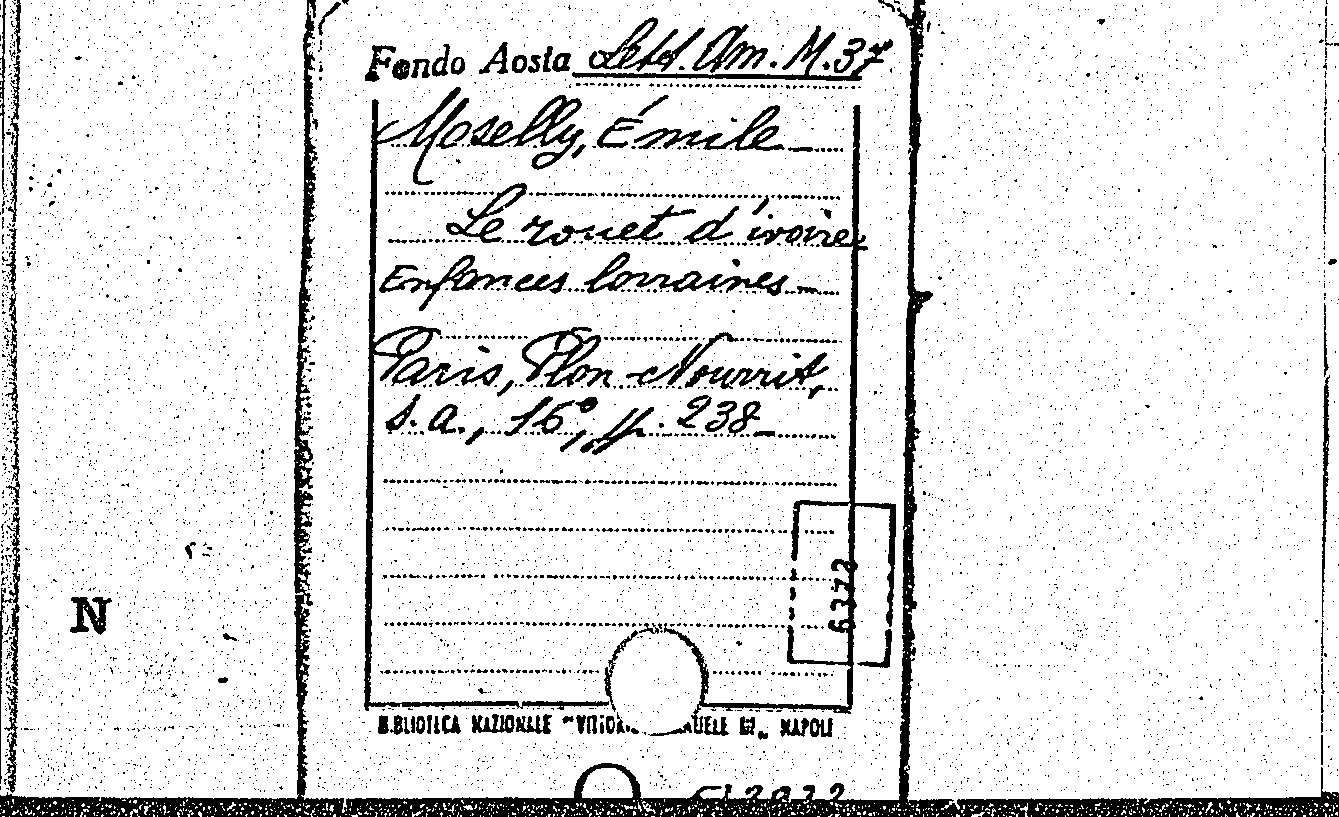 Fondo Aosta Lett. Am. M. 37
Moselly, Émile
Le rouet d'ivoire.
Enfances lorraines
Paris, Plon-Nourrit,
s.a., 16°, pp. 238
6372
N
BIBLIOTECA NAZIONALE "VITTOR UELE III„ NAPOLI